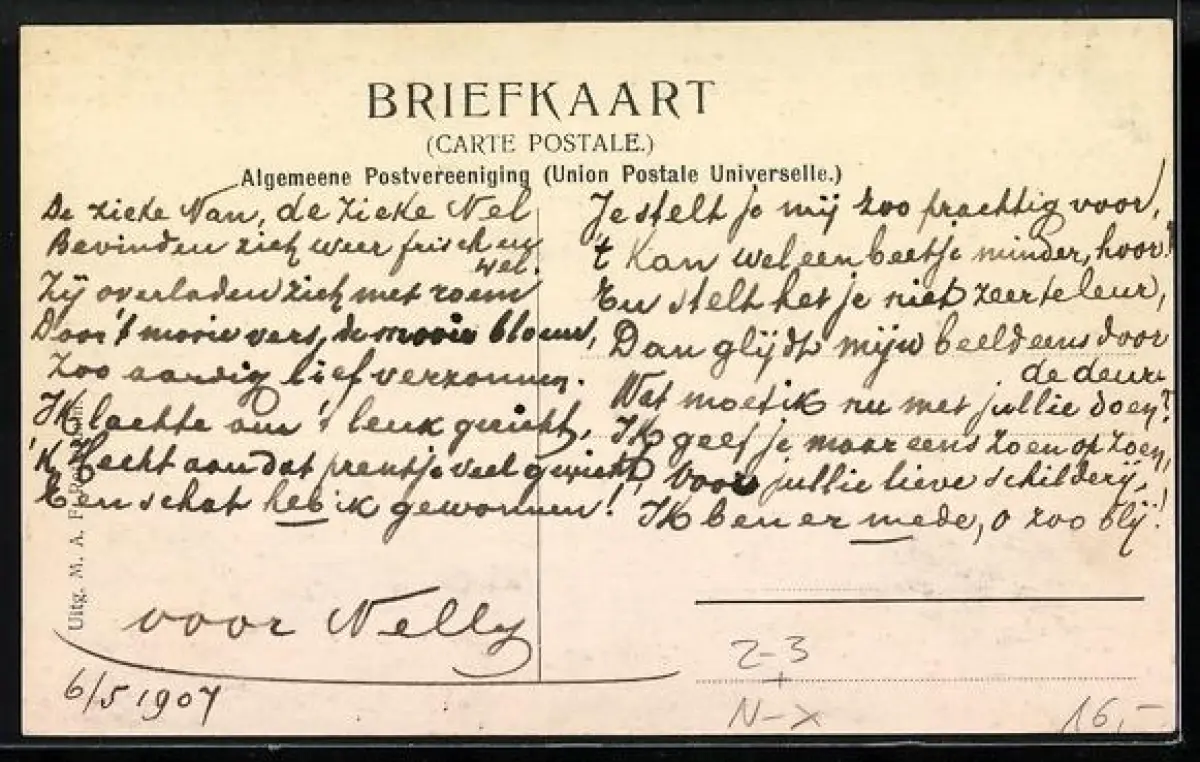 BRIEFKAART
(CARTE POSTALE.)
Algemeene Postvereeniging (Union Postale Universelle.)
De zieke Nan, de zieke Nel
Bevinden zich weer frisch en
wel.
Zij overladen zich met roem
Door 't mooie vers, de mooie bloem,
Zoo aardig lief verzonnen.
Ik lachte om 't leuk gezicht,
'k Hecht aan dat prentje veel gewicht,
Een schat heb ik gewonnen!
Je stelt je mij zoo prachtig voor,
't Kan wel een beetje minder, hoor!
En stelt het je niet zeer teleur,
Dan glijdt mijn beeld eens door
de deur.
Wat moet ik nu met jullie doen?
Ik geef je maar eens zoen op zoen,
Voor jullie lieve schilderij,
Ik ben er mede, o zoo blij!
voor Nelly
6/5 1907
Uitg. M. A. F.
2-3
N-X
16,-